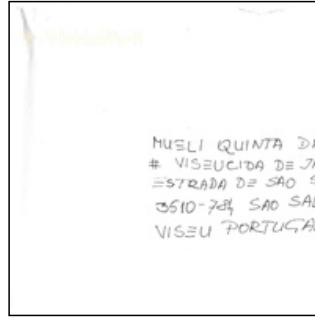 MUELI QUINTA DA
# VISEUCIDA DE JA
ESTRADA DE SAO S
3510-784 SAO SAL
VISEU PORTUGAL